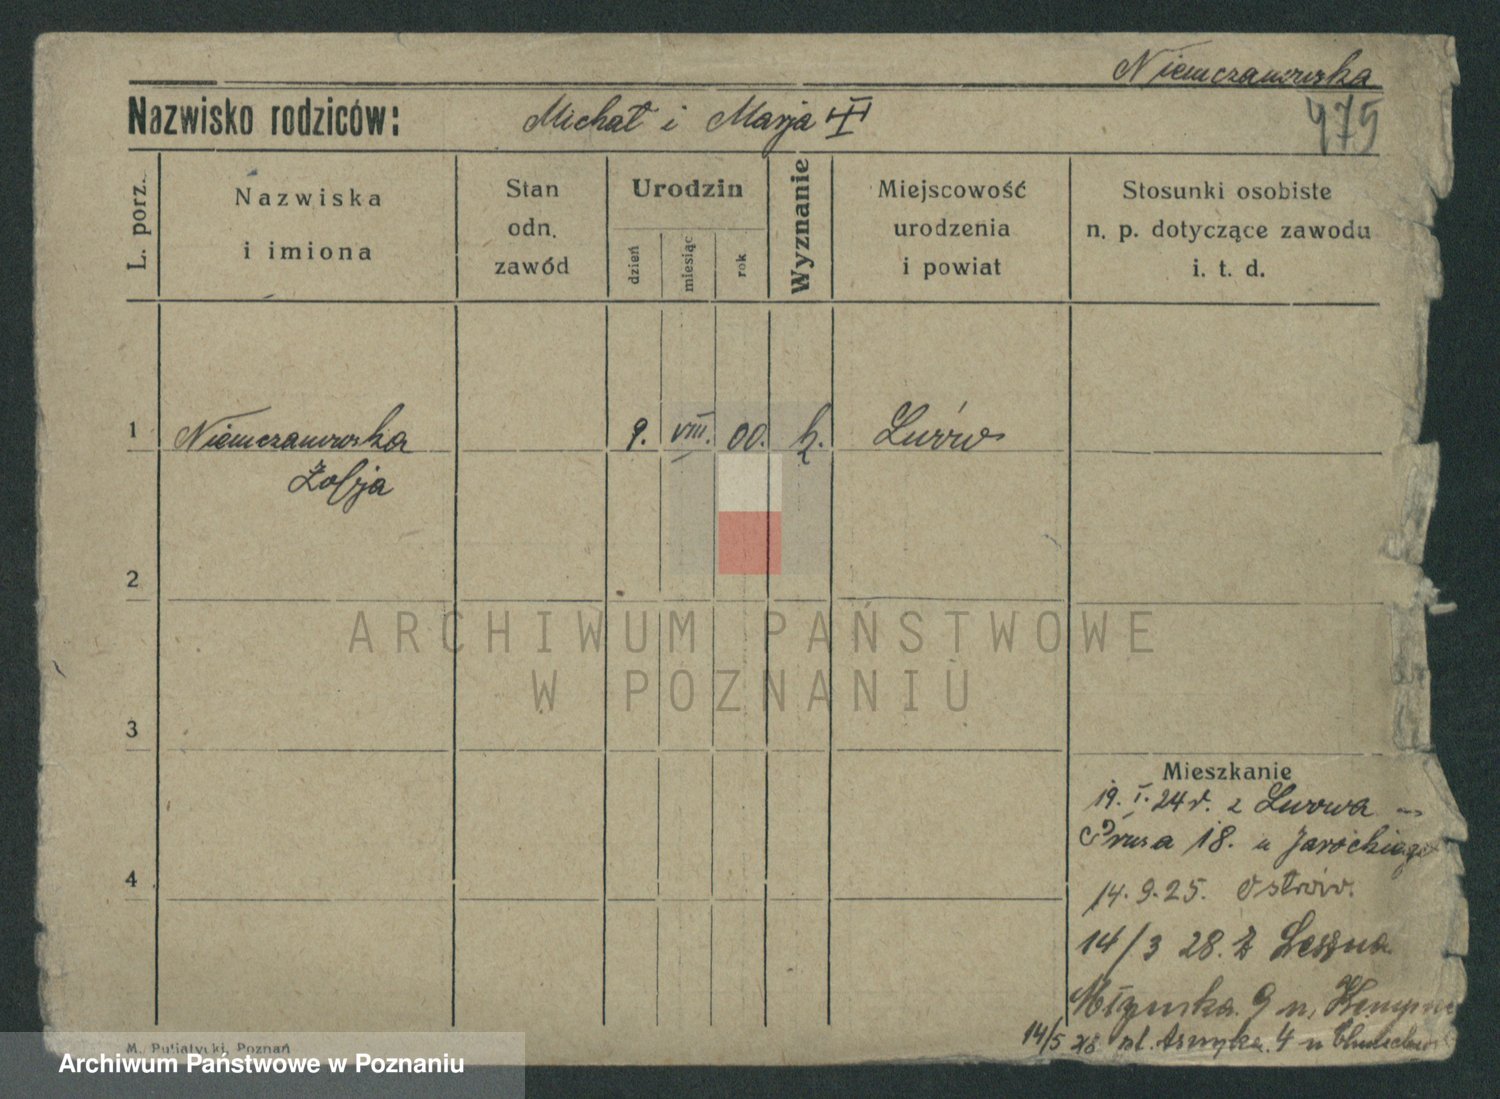 Niemczanowska
Nazwisko rodziców: Michał i Marja
475
L. porz.
Nazwiska
i imiona
Stan
odn.
zawód
Urodzin
dzień
miesiąc
rok
Wyznanie
Miejscowość
urodzenia
i powiat
Stosunki osobiste
n. p. dotyczące zawodu
i. t. d.
1 Niemczanowska 9. VIII. 00. k. Lwów
Zofja
2
ARCHIWUM PAŃSTWOWE
W POZNANIU
3
Mieszkanie
19. I. 24 r. z Lwowa
Prusa 18. u Jarockiego
4
14. 9. 25. Ostrów.
14/3 28. z Leszna
9
14/5 28 pl. Asnyka. 4 u
M. Putiatycki, Poznań
Archiwum Państwowe w Poznaniu